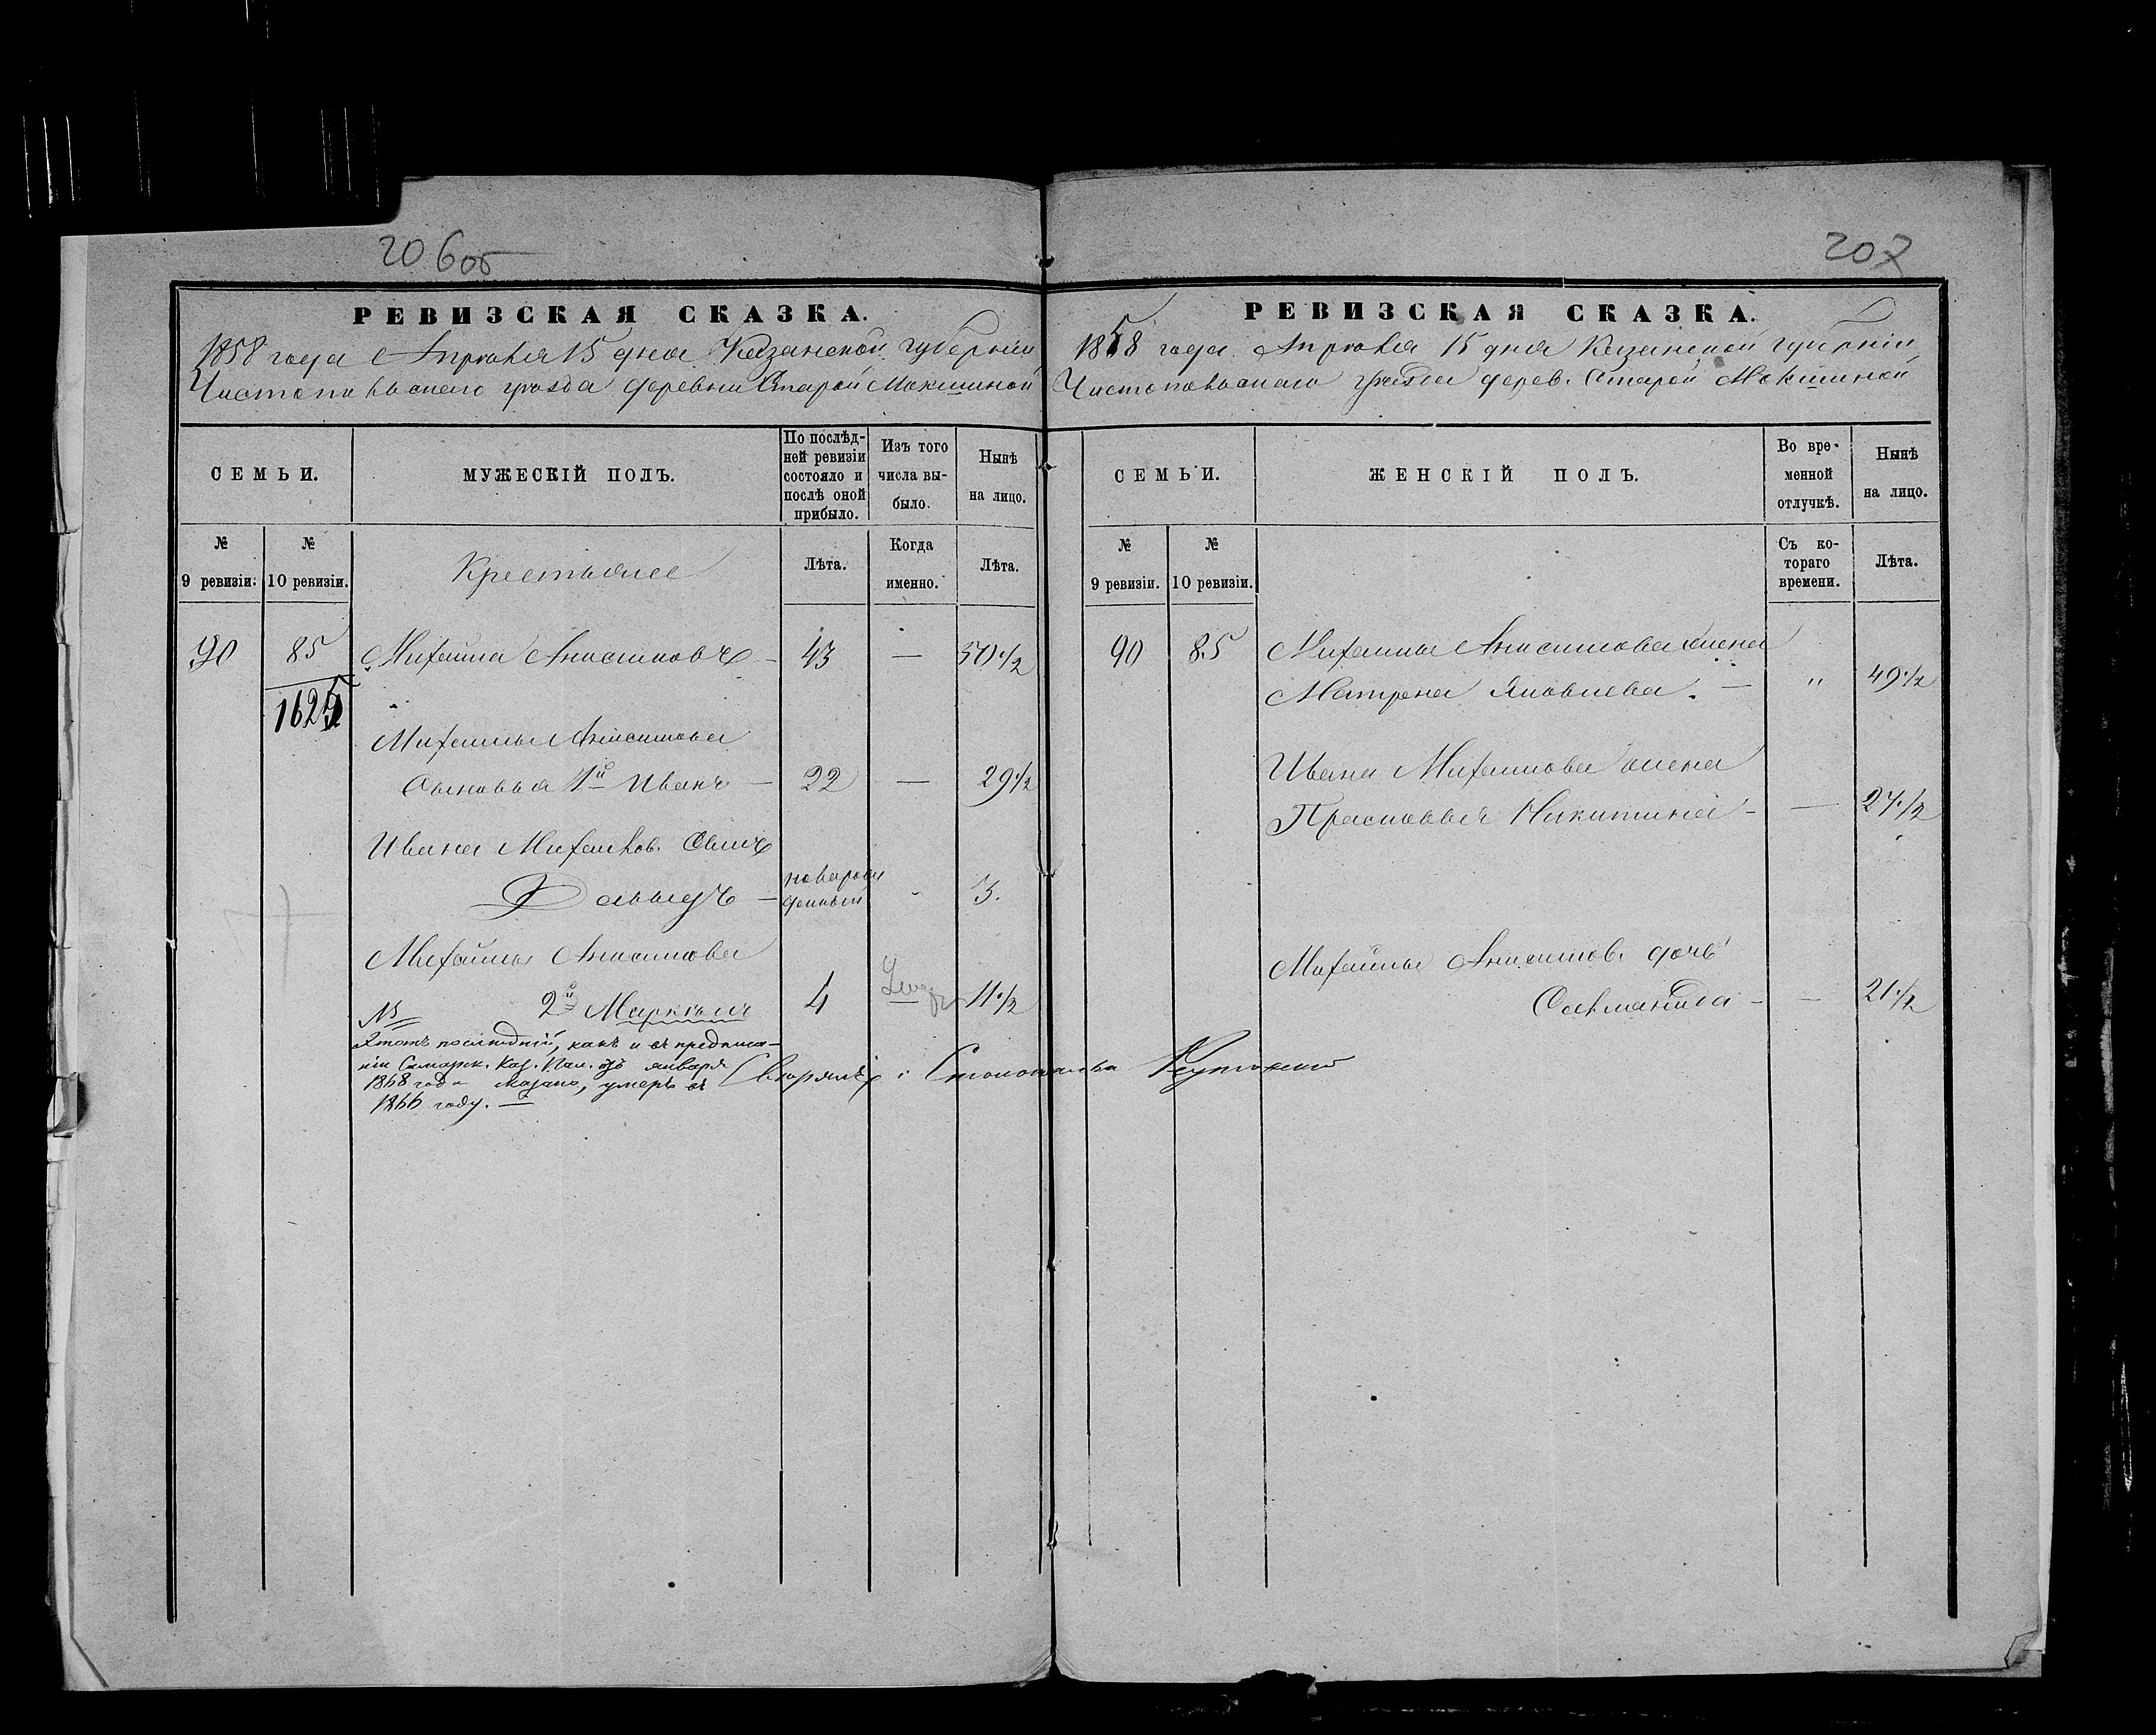 206об
РЕВИЗСКАЯ СКАЗКА.
1858 года Апреля 15 дня Казанской губерніи
Чистопольскаго уѣзда деревни Старой Мокшиной
СЕМЬИ.
МУЖЕСКІЙ ПОЛЪ.
По послѣд-
ней ревизіи
состояло и
послѣ оной
прибыло.
Изъ того
числа вы-
было.
Нынѣ
на лицо.
№
9 ревизіи.
№
10 ревизіи.
Крестьяне
Лѣта.
Когда
именно.
Лѣта.
90 85 Михайла Анисимовъ — 43 — 50 1/2
1625
Михайлы Анисимова
Сыновья 1й Иванъ — 22 — 29 1/2
Ивана Михайлов. Сынъ
Давыдъ — новорож
денный - 3.
Михайлы Анисимова
2й Маркелъ 4 11 1/2
NB
Этотъ послѣдній, какъ и въ предписа-
ніи Самарск. Каз. Пал. отъ января
1868 года сказано, умеръ въ
1866 году. —
Столоначальн
207
РЕВИЗСКАЯ СКАЗКА.
1858 года Апреля 15 дня Казанской губерніи
Чистопольскаго уѣзда дерев. Старой Мокшиной
СЕМЬИ.
ЖЕНСКІЙ ПОЛЪ.
Во вре-
менной
отлучкѣ.
Нынѣ
на лицо.
№
9 ревизіи.
№
10 ревизіи.
Съ ко-
тораго
времени.
Лѣта.
90 85 Михайлы Анисимова жена
Матрена Яковлева. — " 49 1/2
Ивана Михайлова жена
Прасковья Никитина - — 27 1/2
Михайлы Анисимов. дочь
- — 21 1/2